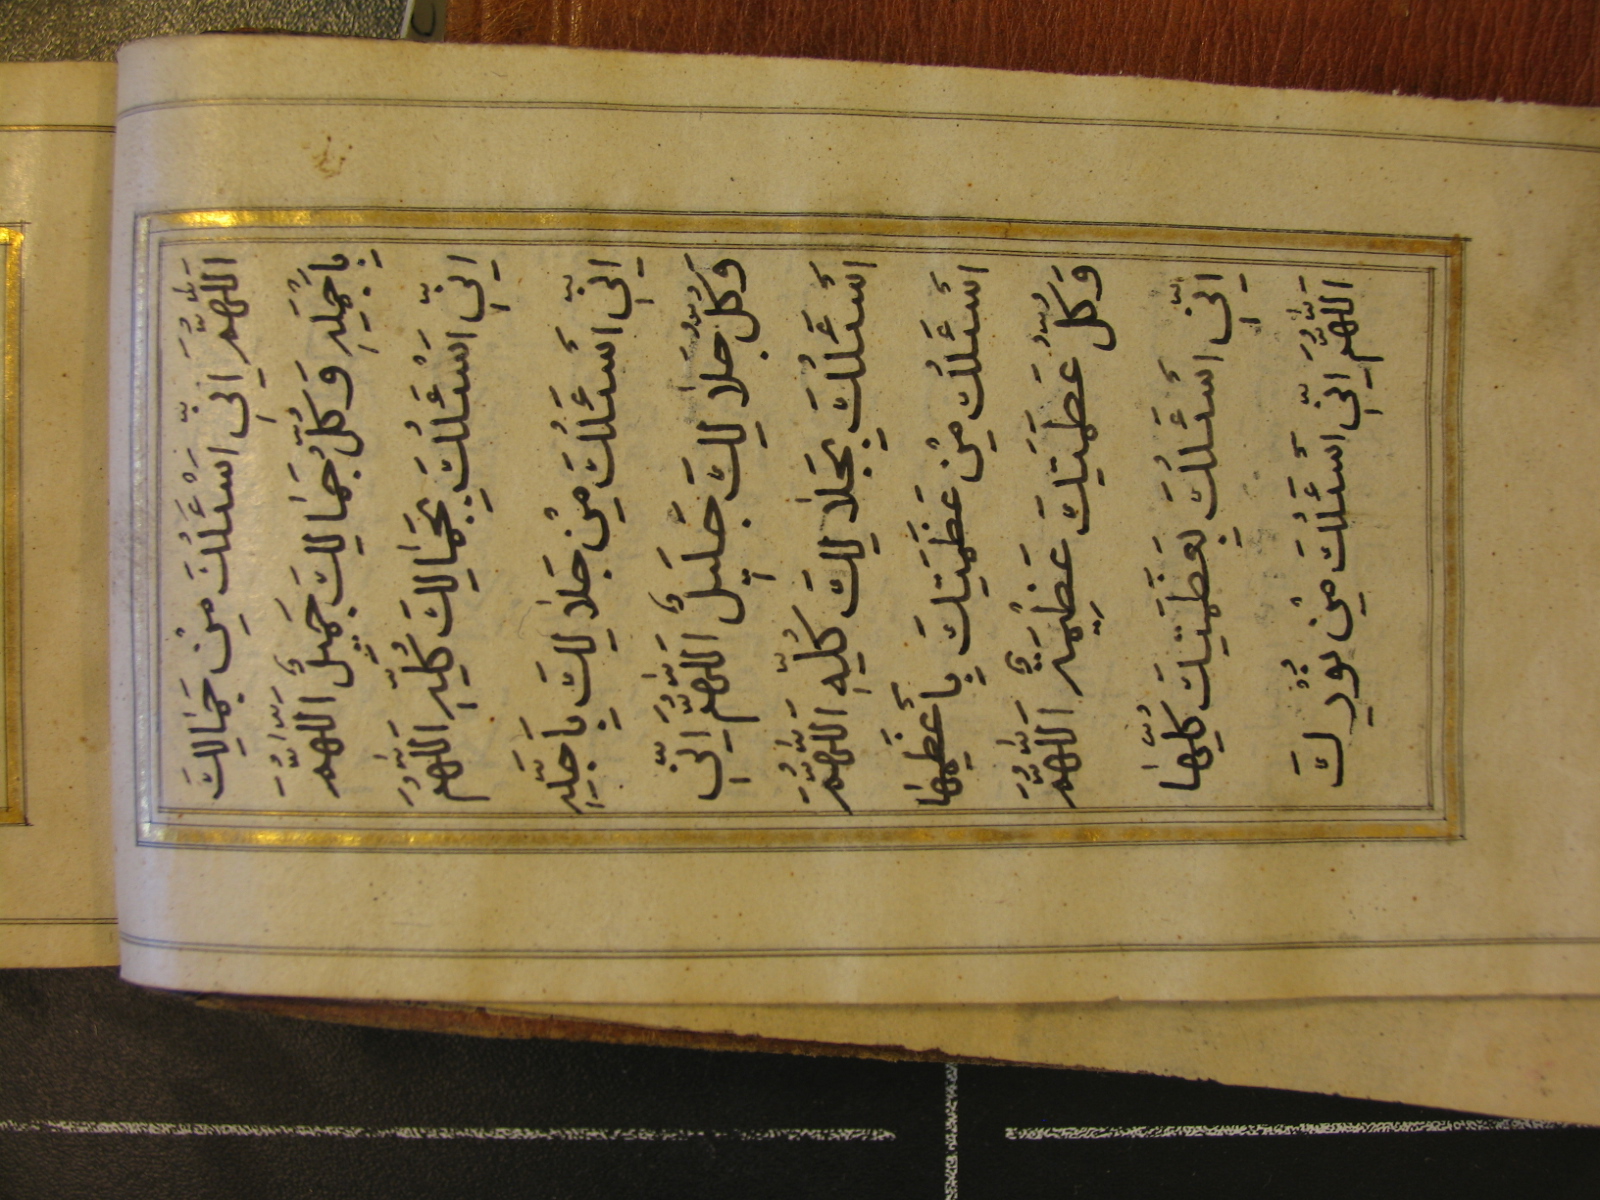 اَللّٰهُمَّ اِنّىِ اَسْئَلُكَ مِنْ جَمَالِكَ
بِاَجْمَلِهِ وَكُلُّ جَمَالِكَ جَمِيلٌ اَللّٰهُمَّ
اِنّىِ اَسْئَلُكَ بِجَمَالِكَ كُلِّهِ اَللّٰهُمَّ
اِنّىِ اَسْئَلُكَ مِنْ جَلَالِكَ بِاَجَلِّهِ
وَكُلُّ جَلَالِكَ جَلِيلٌ اَللّٰهُمَّ اِنّىِ
اَسْئَلُكَ بِجَلَالِكَ كُلِّهِ اَللّٰهُمَّ
اَسْئَلُكَ مِنْ عَظَمَتِكَ بِاَعْظَمِهَا
وَكُلُّ عَظَمَتِكَ عَظِيمَةٌ اَللّٰهُمَّ
اِنّىِ اَسْئَلُكَ بِعَظَمَتِكَ كُلِّهَا
اَللّٰهُمَّ اِنّىِ اَسْئَلُكَ مِنْ نُورِكَ